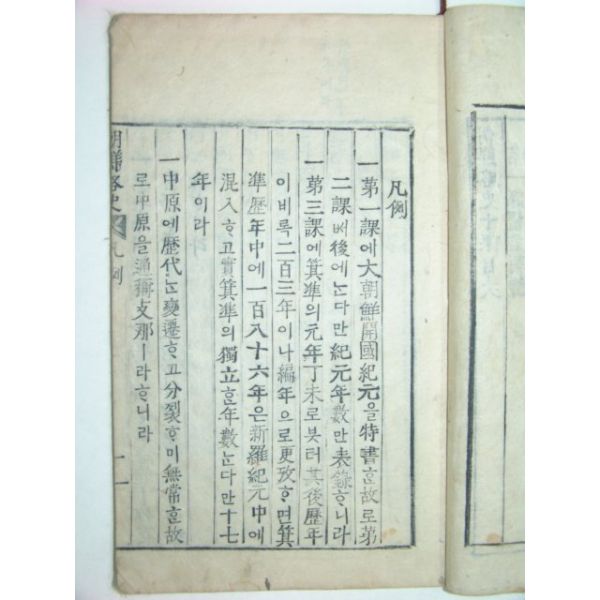 凡例
一 第一課에 大朝鮮開國紀元을 特書ᄒᆞᆫ 故로 第
二課버 後에ᄂᆞᆫ 다만 紀元年數만 表錄ᄒᆞ니라
一 第三課에 箕準의 元年丁未로봇터 其後歷年
이 비록 二百三年이나 編年으로 更攷ᄒᆞ면 箕
準歷年中에 一百八十六年은 新羅紀元中에
混入ᄒᆞ고 實箕準의 獨立ᄒᆞᆫ 年數ᄂᆞᆫ 다만 十七
年이라
一 中原에 歷代ᄂᆞᆫ 變遷ᄒᆞ고 分裂ᄒᆞ미 無常ᄒᆞᆫ 故
로 中原을 通稱支那ㅣ라 ᄒᆞ니라
朝鮮略史 凡例 二